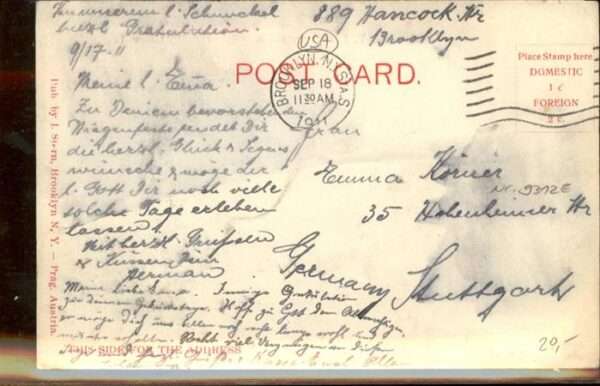 889 Hancock Str
Brooklyn
9/17 11
USA
BROOKLYN, N.Y.
SEP 18
11 30 AM
1911
POST CARD.
Place Stamp here
DOMESTIC
1 c
FOREIGN
2 c.
Meine l. Emma.
Zu Deinem bevorstehenden
Wiegenfeste sendet Dir
die herzl. Glück & Segens
wünsche & möge der
l. Gott Dir noch viele
solche Tage erleben
lassen!
Mit herzl. Grüssen
& Küssen Dein
Herman
Meine liebe Emma. Innige Gratulation
zu deinem Geburtstage. Hoff zu Gott dem Allmächtigen
er möge Dich uns allen noch recht lange wohl und
Recht viel Vergnügen an diesem
Frau
Emma Körner
Nr. 9312E
35 Hohenheimer Str
Germany Stuttgart
20,-
Pub. by I. Stern, Brooklyn N. Y. — Prag, Austria.
THIS SIDE FOR THE ADDRESS